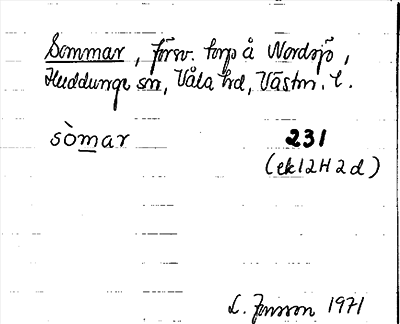 Sommar, förv. torp å Nordsjö,
Huddunge sn, Våla hd, Västm. l.
sòmar 231
(ek 12H2d)
L. Jonsson 1971